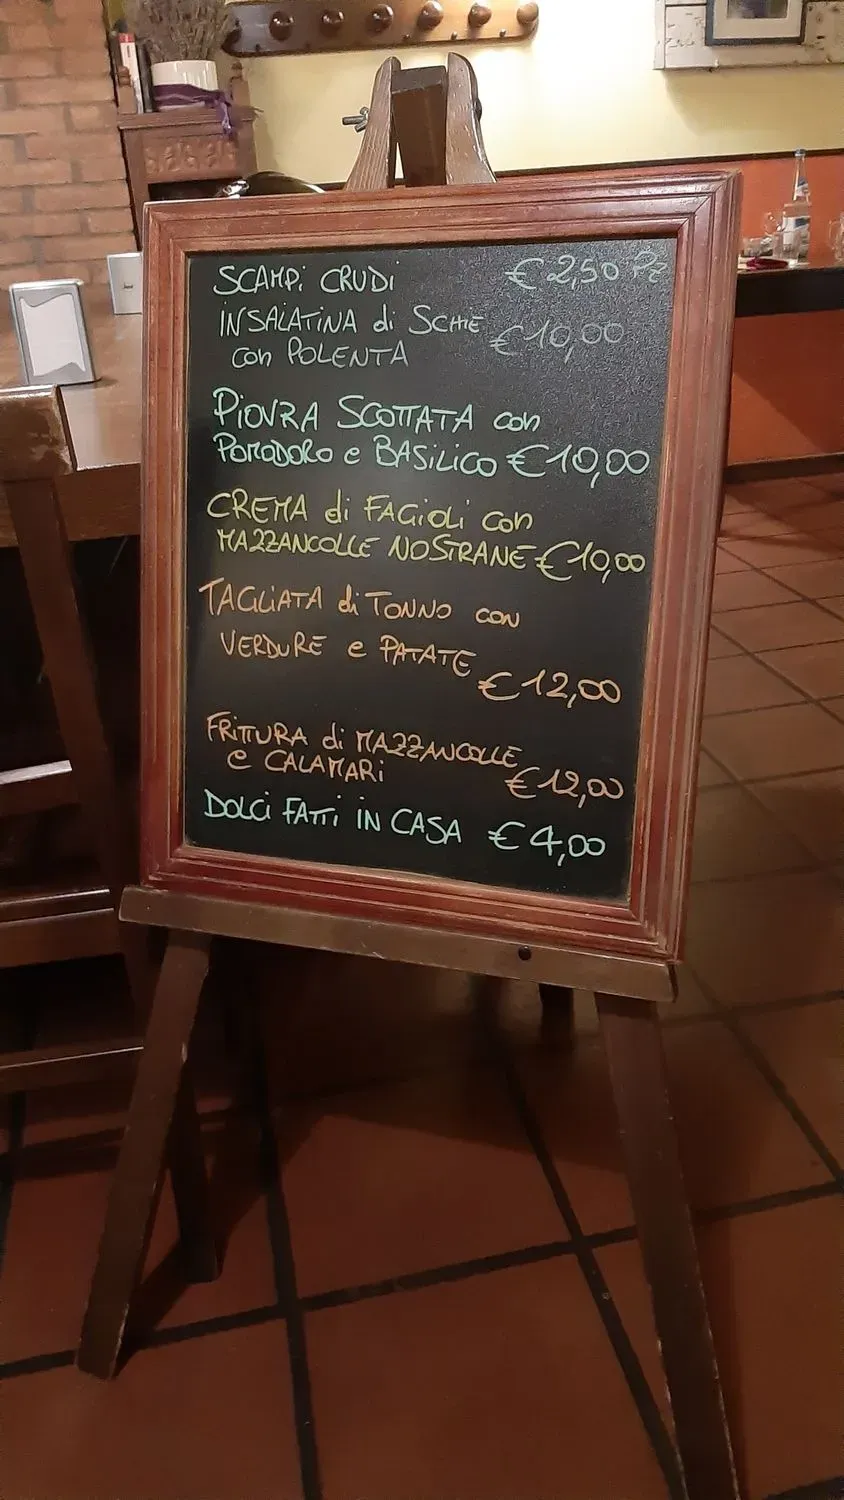 SCAMPI CRUDI € 2,50 Pz
INSALATINA di SCHIE € 10,00
con POLENTA
PIOVRA SCOTTATA con
POMODORO e BASILICO € 10,00
CREMA di FAGIOLI con
MAZZANCOLLE NOSTRANE € 10,00
TAGLIATA di TONNO con
VERDURE e PATATE
€ 12,00
FRITTURA di MAZZANCOLLE
e CALAMARI € 12,00
DOLCI FATTI IN CASA € 4,00